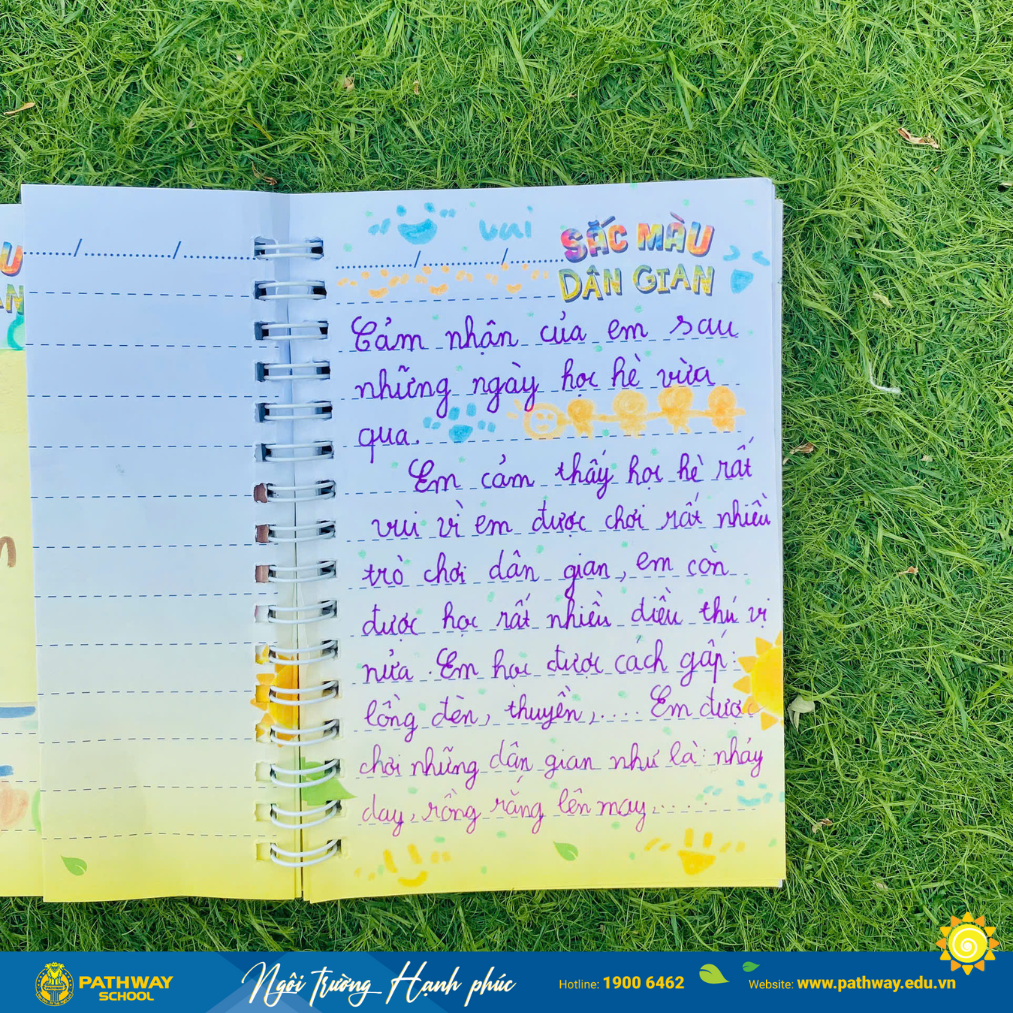 U
AN
...../............/............
vui
...../............/............
SẮC MÀU
DÂN GIAN
Cảm nhận của em sau
những ngày học hè vừa
qua.
Em cảm thấy học hè rất
vui vì em được chơi rất nhiều
trò chơi dân gian, em còn
được học rất nhiều điều thú vị
nửa. Em học được cách gấp:
lồng đèn, thuyền,.... Em được
chơi những dân gian như là: nhảy
dây, rồng rắng lên mây.....
PATHWAY
SCHOOL
Ngôi Trường Hạnh phúc
Hotline: 1900 6462
Website: www.pathway.edu.vn